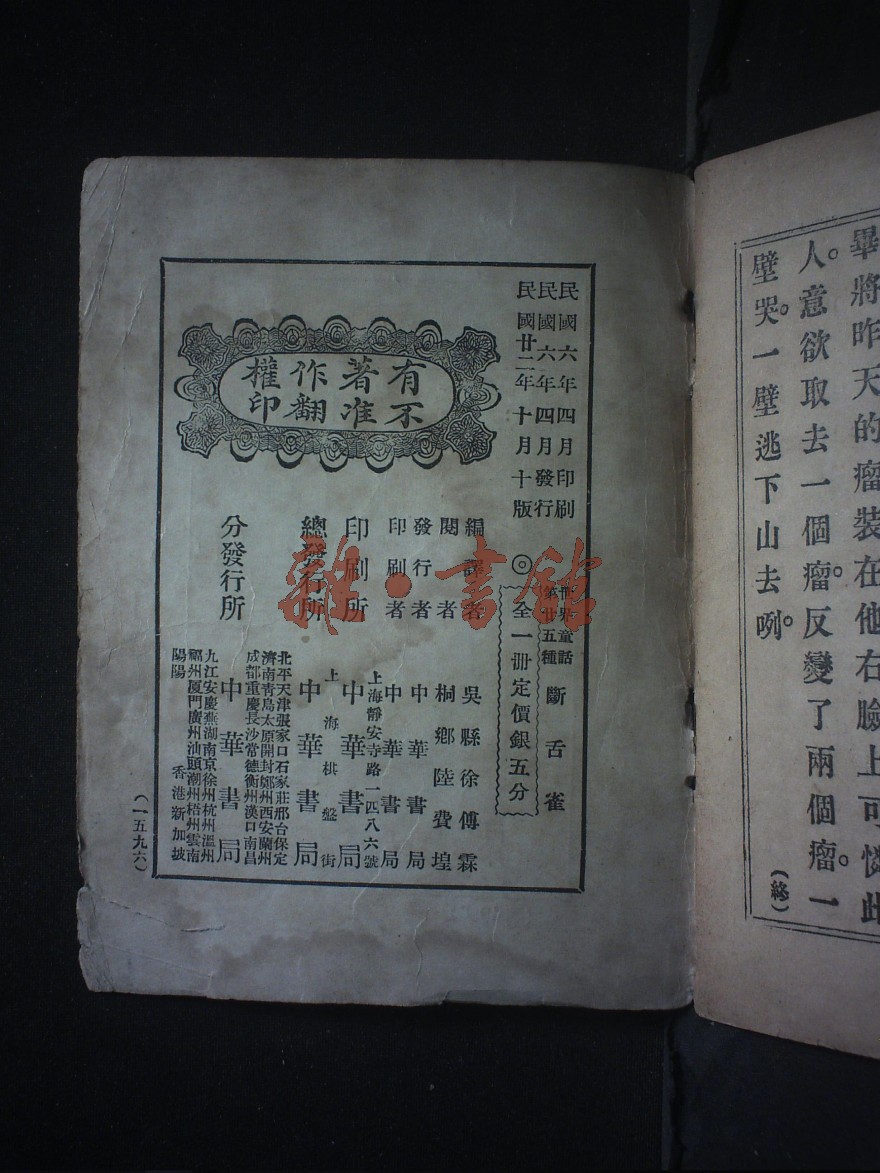 畢將昨天的瘤裝在他右臉上可憐此
人。意欲取去一個瘤。反變了兩個瘤。一
壁哭。一壁逃下山去咧。
(終)
民國六年四月印刷
民國六年四月發行
民國廿二年十月十版
有著作權
不准翻印
世界童話
第廿五種
斷舌雀
◎
全一冊定價銀五分
編譯者 吳縣徐傅霖
閱者 桐鄉陸費堭
發行者 中華書局
印刷者 中華書局
印刷所 上海靜安寺路一四八六號
中華書局
總發行所 上海棋盤街
中華書局
分發行所
北平天津張家口石家莊邢台保定
濟南青島太原開封鄭州西安蘭州
成都重慶長沙常德衡州漢口南昌
中華書局
九江安慶蕪湖南京徐州杭州溫州
福州厦門廣州汕頭潮州梧州雲南
陽陽 香港新加坡
(一五九六)
雜·書館